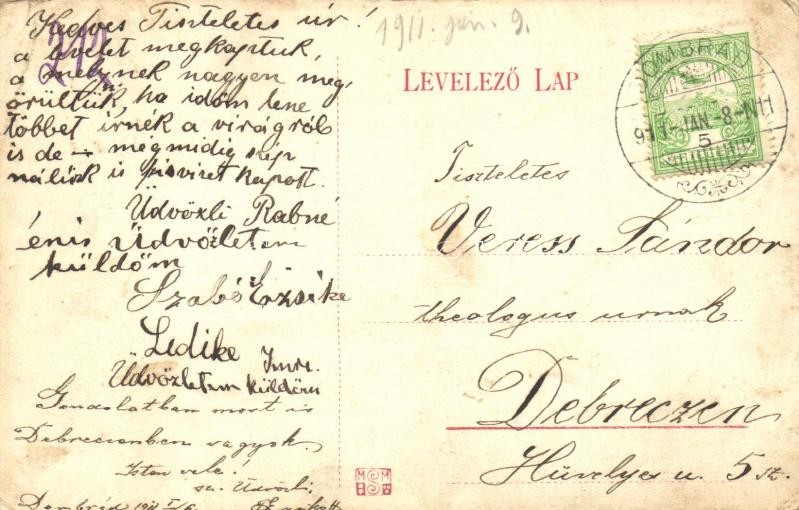 Kedves Tiszteletes úr!
a levelet megkaptuk,
a melynek nagyon meg,
örültük, ha időm lene
többet irnék a virágról
is de — mégmidig szép
nálick is kapott.
Üdvözli Rabné
énis Üdvözletem
küldöm
Szabó Erzsike
Lidike Imre.
Üdvözletem küldöm
Gondolatban most is
Debreczenben vagyok.
Isten vele!
sz. Üdvözli,
Dombrád 1911
212
1911. jan. 9.
LEVELEZŐ LAP
DOMBRÁD
911 JAN -8 -N11
5
Tiszteletes
Veress Sándor
theologus urnak
Debreczen
Hüvelyes u. 5 sz.
MSM